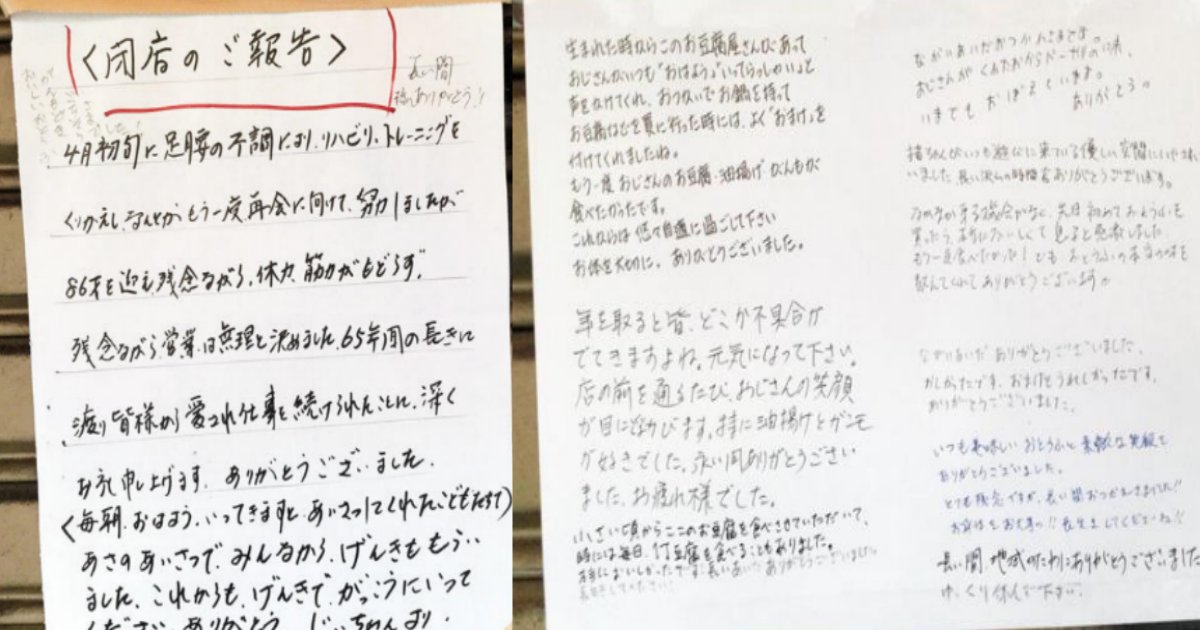 〈閉店のご報告〉
長い間
ありがとう!!
4月初旬に足腰の不調により、リハビリ、トレーニングを
くりかえし、なんとか、もう一度再会に向けて、努力しましたが
86才を迎え、残念ながら、体力、筋力がもどらず、
残念ながら営業は無理と決めました。65年間の長きに
渡り皆様から愛され仕事を続けられたことに、深く
お礼申し上げます。ありがとうございました。
(毎朝、おはよう、いってきますと、あいさつしてくれたこどもたち)
あさのあいさつで、みんなから、げんきをもらい
ました。これからも、げんきで、がっこうにいって
ください。ありがとう。じいちゃんより.
生まれた時からこのお豆腐屋さんがあって
おじさんがいつも"おはよう""いってらっしゃい"と
声をかけてくれ、おつかいでお鍋を持って
お豆腐などを買いに行った時には、よく"おまけ"を
付けてくれましたね。
もう一度おじさんのお豆腐・油揚げ・がんもが
食べたかったです。
これからは悠々自適に過ごして下さい
お体を大切に。ありがとうございました。
年を取ると皆、どこか不具合が
でてきますよね。元気になって下さい。
店の前を通るたび、おじさんの笑顔
が目に浮びます。特に油揚げとガンモ
が好きでした。永い間ありがとうござい
ました。お疲れ様でした。
小さい頃からここのお豆腐を食べさせていただいて、
時には毎日、1丁豆腐を食べることもありました。
本当においしかったです。長いあいだありがとうございました。
ながいあいだおつかれさまです。
おじさんがくれたおからドーナツの味、
いまでもおぼえています。
ありがとう。
いつも遊びに来ている優しい空間に
いました 長い間ありがとうございます。
先日初めておとうふを
買ったら、本当においしくて 感激しました
もう一度食べたかった! でも、おとうふの本当の味を
教えてくれてありがとうございます。
ながいあいだ ありがとうございました。
おいしかったです。おまけとうれしかったです。
ありがとうございました。
いつも美味しいおとうふと素敵な笑顔を
ありがとうございました。
とても残念ですが、長い間おつかれさまでした!!
お身体をお大事に!! 長生きしてくださいね!!
長い間、地域のためにありがとうございました
ゆっくり休んで下さい。